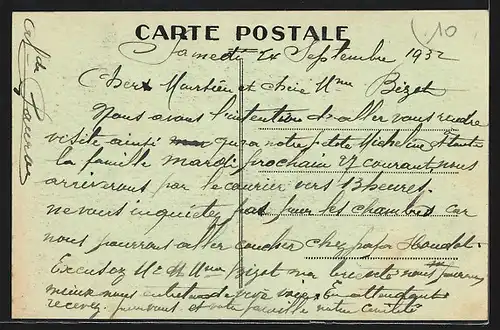 10
CARTE POSTALE
Samedi 24 Septembre 1932
Cher Monsieur et chère Mme Bizet
Nous avons l'intention d'aller vous rendre
visite ainsi qu'a notre petite Micheline
la famille mardi prochain 27 courant, nous
arriverons par le courier vers 13 heures.
ne vous inquietez pas pour les chambres car
nous pourrons aller coucher chez papa
Excusez Mr et Mme Bizet ma nous pourrons
mieux nous de vive voix. En attendant
recevez